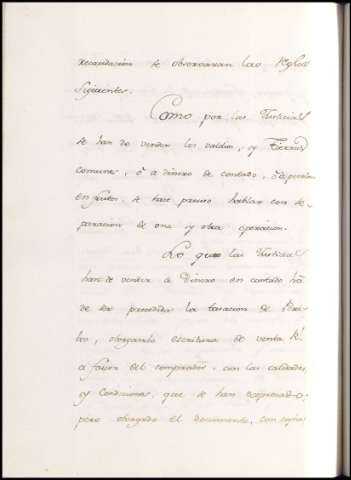 recaudacion se observaran las Reglas
siguientes.
Como por las Justicias
se han de vender los valdios, y Tierras
comunes, ò a dinero de contado, ò
en frutos, se hace preciso hablar con se-
paracion de una y otra operacion.
La que las Justicias
han de vender à Dinero en contado hà
de ser precedida la tasacion de Peri-
tos, otorgando escritura de venta Rl.
a favor del comprador, con las calidades,
y condiciones, que se han expresado;
pero otorgado el documento, con copia